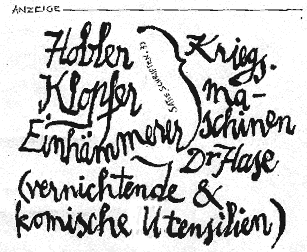 ANZEIGE
Hobler
Klopfer
Einhämmerer
SCHRIFTEN
Kriegs-
ma-
schinen
Dr Hase
(vernichtende &
komische Utensilien)